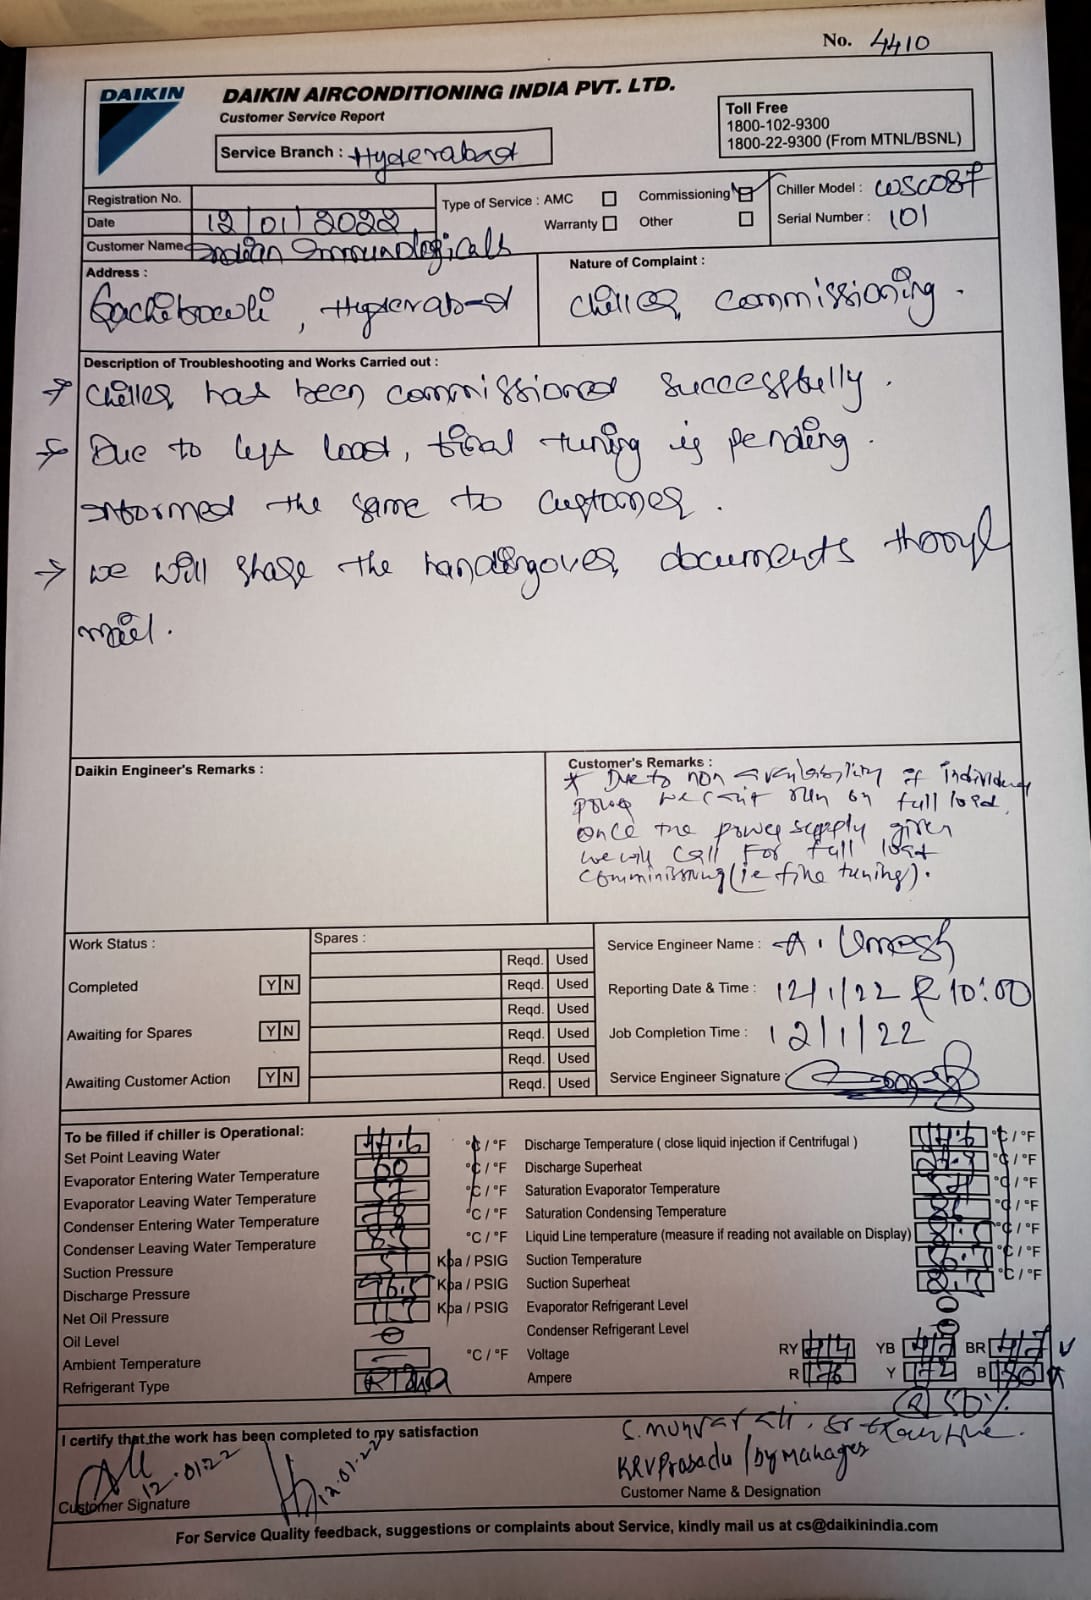 No. 4410
DAIKIN
DAIKIN AIRCONDITIONING INDIA PVT. LTD.
Customer Service Report
Service Branch : Hyderabad
Toll Free
1800-102-9300
1800-22-9300 (From MTNL/BSNL)
Registration No.
Date 12/01/2022
Customer Name Indian Immunologicals
Type of Service : AMC Commissioning
Warranty Other
Chiller Model : WSC087
Serial Number : 101
Address :
Gachibowli, Hyderabad
Nature of Complaint :
Chiller commissioning.
Description of Troubleshooting and Works Carried out :
→ Chiller has been commissioned successfully.
→ Due to less load, final tuning is pending.
Informed the same to customer.
→ we will share the handingover documents through
mail.
Daikin Engineer's Remarks :
Customer's Remarks :
* Due to non availability of individual
power we can't run on full load,
once the power supply given
we will call for full load
commissioning (ie fine tuning).
Work Status :
Completed Y N
Awaiting for Spares Y N
Awaiting Customer Action Y N
Spares :
Reqd. Used
Reqd. Used
Reqd. Used
Reqd. Used
Reqd. Used
Reqd. Used
Service Engineer Name : A. Umesh
Reporting Date & Time : 12/1/22 & 10:00
Job Completion Time : 12/1/22
Service Engineer Signature :
To be filled if chiller is Operational:
Set Point Leaving Water 44.6 °C / °F
Evaporator Entering Water Temperature 60 °C / °F
Evaporator Leaving Water Temperature 57 °C / °F
Condenser Entering Water Temperature °C / °F
Condenser Leaving Water Temperature °C / °F
Suction Pressure 51 Kpa / PSIG
Discharge Pressure 96.5 Kpa / PSIG
Net Oil Pressure Kpa / PSIG
Oil Level
Ambient Temperature °C / °F
Refrigerant Type R134a
Discharge Temperature ( close liquid injection if Centrifugal ) °C / °F
Discharge Superheat °C / °F
Saturation Evaporator Temperature °C / °F
Saturation Condensing Temperature °C / °F
Liquid Line temperature (measure if reading not available on Display) 81.5 °C / °F
Suction Temperature °C / °F
Suction Superheat °C / °F
Evaporator Refrigerant Level
Condenser Refrigerant Level
Voltage RY 414 YB BR V
Ampere R 176 Y 172 B 180 A
@ 50%
I certify that the work has been completed to my satisfaction
12.01.22
12.01.22
Customer Signature
S. Munvar Ali, Sr Executive.
KRV Prasadu / Dy Manager
Customer Name & Designation
For Service Quality feedback, suggestions or complaints about Service, kindly mail us at cs@daikinindia.com